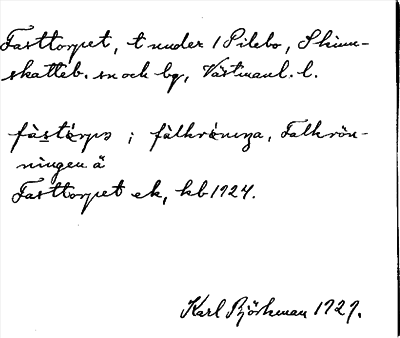 Fasttorpet, t under 1 Pilebo, Skinn-
skatteb. sn ock bg, Västmanl. l.
fàstórps i fàlkròniŋa, Falkrön-
ningen ä
Fasttorpet ek, kb 1924.
Karl Björkman 1929.